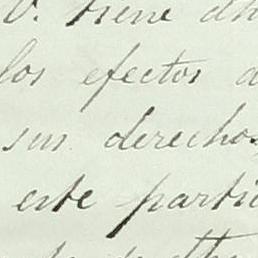 V. tiene dh
los efectos d
sus derechos
este partic